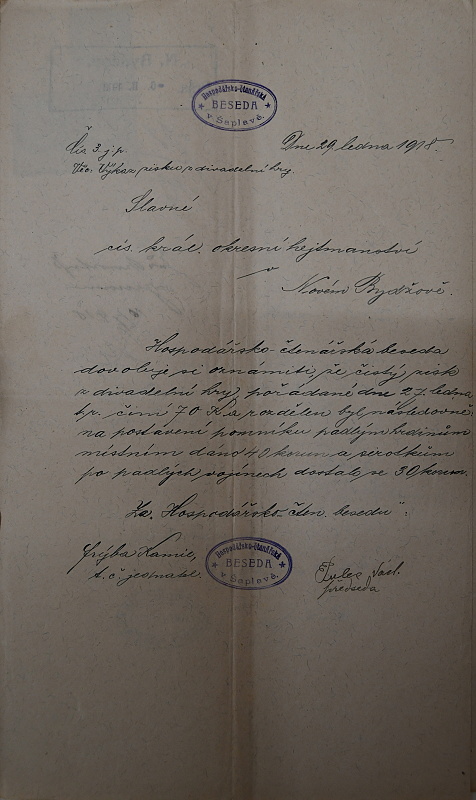 Hospodářsko-čtenářská
BESEDA
v Šaplavě.
Čís 3. j. p.
Dne 29 ledna 1918.
Věc: Výkaz zisku z divadelní hry.
Slavné
cís. král. okresní hejtmanství
v
Novém Bydžově.
Hospodářsko-čtenářská beseda
dovoluje si oznámiti, že čistý zisk
z divadelní hry, pořádané dne 27. ledna
t.r. činí 70 K a rozdělen byl následovně,
na postavení pomníku padlým hrdinům
místním dáno 40 korun a sirotkům
po padlých vojínech dostalo se 30 korun.
Za "Hospodářsko-čten. besedu":
Frýba Kamil,
t. č. jednatel.
Hospodářsko-čtenářská
BESEDA
v Šaplavě.
předseda